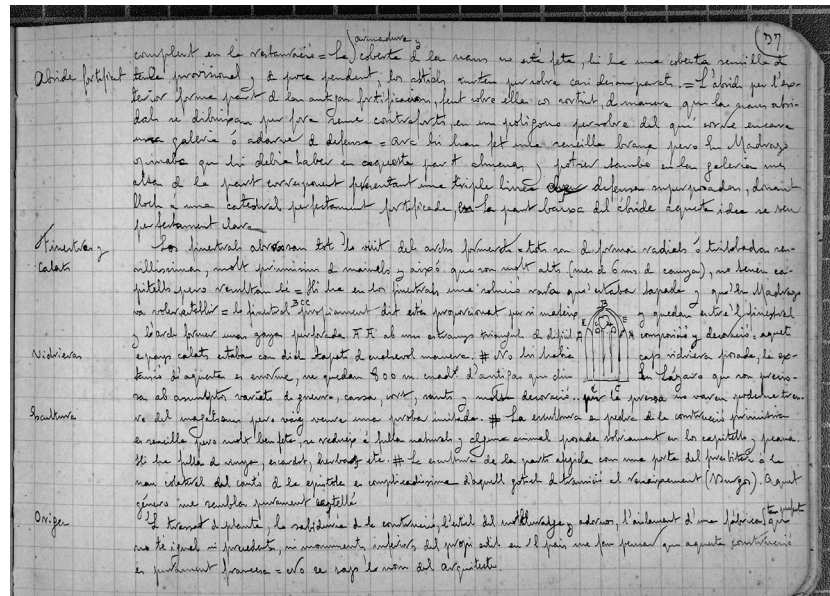 (37
armadura y
complert en la restauració = La coberta d las naus no está feta, hi ha una coberta sencilla de
Abside fortificat
teula provisional y de poca pendent, los altials surten per sobre casi desamparats. = L'absid per l'ex-
terior forma part d las antigas fortificacions, fent sobre ellas cos sortint, de manera que las naus absi-
dals se dibuixan per fora sense contraforts, en un poligono per sobre del qui corre encara
una galeria ó adarve d defensa = avc hi han fet una sencilla brana pero en Madrazo
opinaba que hi debia haber en aquesta part almenas y potser tambe en las galerias mes
altas de la part corresponent presentant una triple linea defensas superposadas, donant
lloch a una catedral perfectament fortificada, En la part baixa del abside aquesta idea se veu
perfectament clara
Finestras y
Calats
Los finestrals abrassan tot l'ample dels archs formerets = tots son d forma radials ó trilobadas sen-
cillissimas, molt primissims d mainels y aixó que son molt alts (mes d 6 ms d canya), no tenen ca-
pitells pero resultan bé = Hi ha en los finestrals una solució rara que estaba tapada y que'n Madrazo
va restablir = lo finestral BCC propiament dit esta proporcionat per si mateix y quedan entre'l finestral
y l'arch former unas perforadas A A al
Vidrieras
espays calats estaban con dich tapat de cualsevol manera. # No hi habia cap vidriera posada, la ex-
tensió d'aquestas es enorme, ne quedan 800 m. cuadts d'antigas que diu en Lázaro que son precio-
sas ab assumptos variats de guerra, cassa, cort, sants y molta decoració. per la pressa no varen poderme treu-
re del magatsem pero vaig veure una proba imitada. # La escultura en pedra de la construcció primitiva
Escultura
es sencilla pero molt ben feta, se redueix á fulla natural y algans animal posada sobriament en los capitells y peanas.
Hi ha fulla d vinya, escardot, herbas etc. # La escultura de la part afegida com una porta del presbiteri ó la
nau colateral del cantó de la epistola es complicadissima d'aquell gotich de transició al renaixement (Burgos). Aquet
género me sembla purament castellá
Origen
Lo trassat d planta, la sabiduria de la construcció, l'estil del motlluratje y adornos, l'aislament d'una fábrica tan perfecta que
no té igual ni precedents, ni monuments inferiors del propi estil en 'l pais me fan pensar que aquesta construcció
es purament francesa = No se sap lo nom del arquitecte.